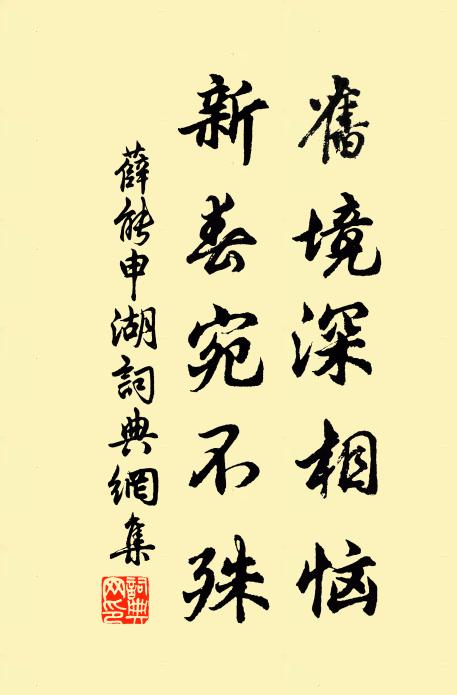 舊境深相恼
新春宛不殊
薛能申湖詞典網集
詞典網印